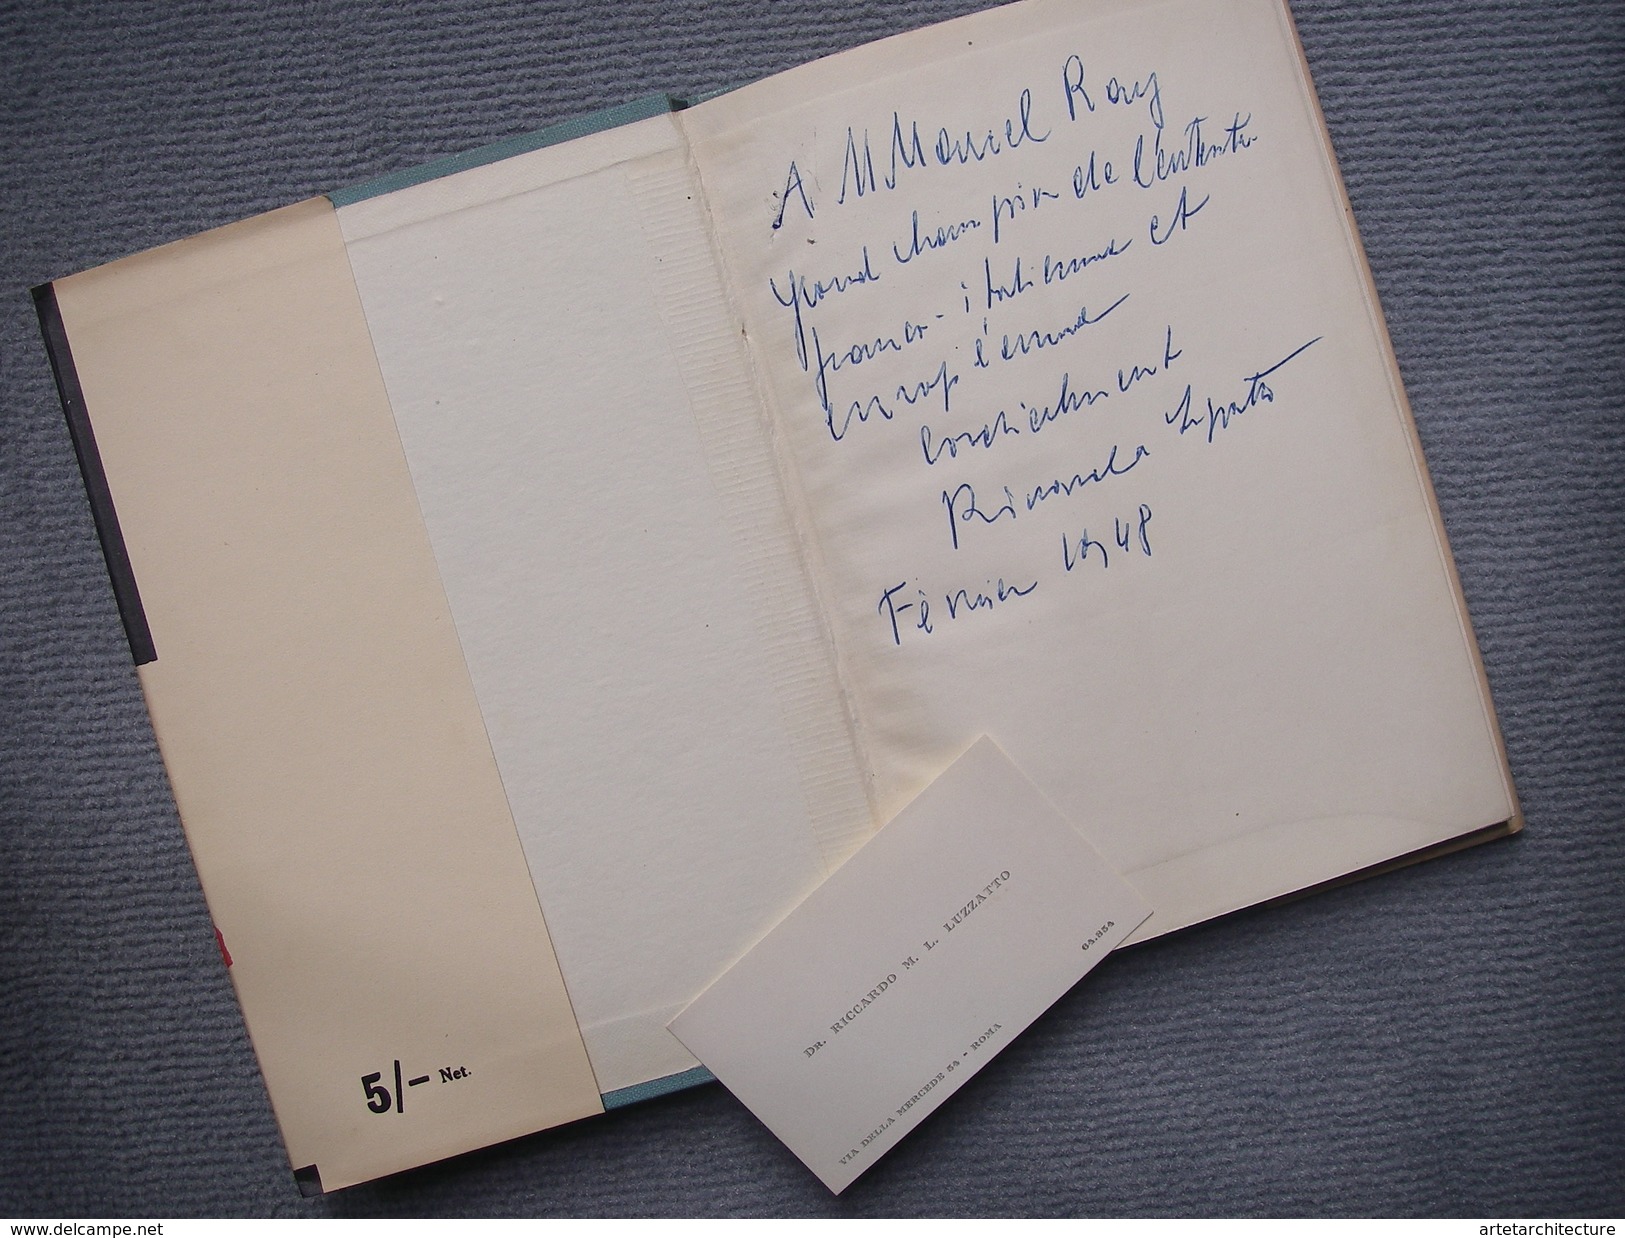 A M Marcel Ray
grand champion de l'entente
franco-italienne et
européenne
Cordialement
Février 1948
5/- Net.
DR. RICCARDO M. L. LUZZATTO
VIA DELLA MERCEDE 54 - ROMA
64.854
www.delcampe.net
artetarchitecture